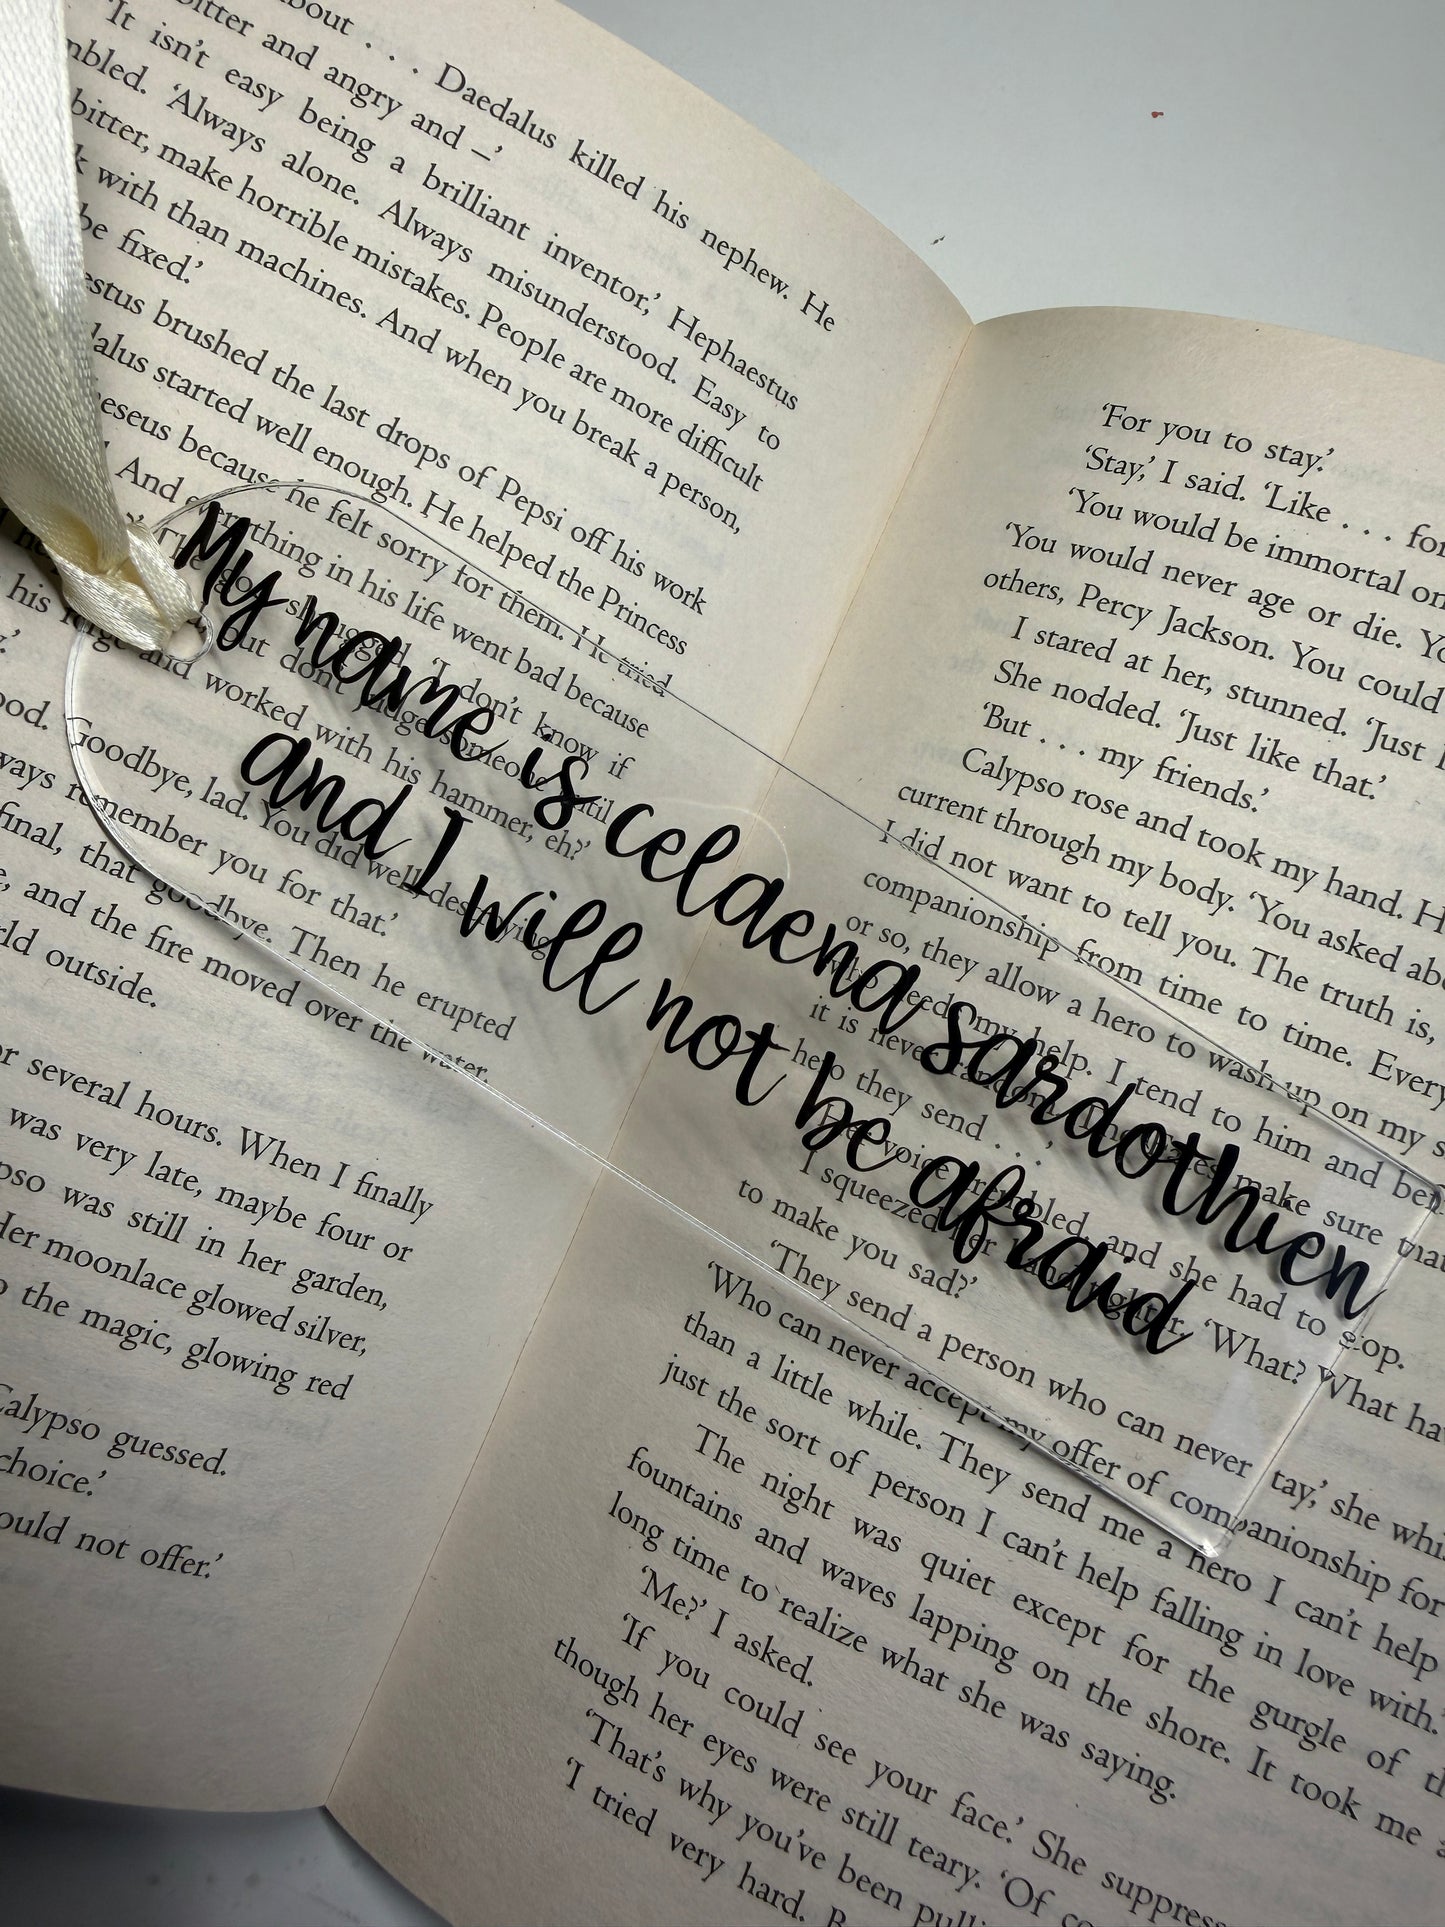 about . . . Daedalus killed his nephew. He
bitter and angry and –'
'It isn't easy being a brilliant inventor,' Hephaestus
mbled. 'Always alone. Always misunderstood. Easy to
bitter, make horrible mistakes. People are more difficult
k with than machines. And when you break a person,
be fixed.'
estus brushed the last drops of Pepsi off his work
dalus started well enough. He helped the Princess
eseus because he felt sorry for them. He tried
And everything in his life went bad because
The god shrugged. 'I don't know if
but don't judge someone until
his forge and worked with his hammer, eh?'
y.'
ood. Goodbye, lad. You did well, destroying
ways remember you for that.'
final, that goodbye. Then he erupted
e, and the fire moved over the water,
rld outside.
or several hours. When I finally
was very late, maybe four or
pso was still in her garden,
Her moonlace glowed silver,
o the magic, glowing red
Calypso guessed.
choice.'
ould not offer.'
My name is celaena sardothien
and I will not be afraid
'For you to stay.'
'Stay,' I said. 'Like . . . for
'You would be immortal on
'You would never age or die. Yo
others, Percy Jackson. You could
I stared at her, stunned. 'Just l
She nodded. 'Just like that.'
'But . . . my friends.'
Calypso rose and took my hand. H
current through my body. 'You asked abo
I did not want to tell you. The truth is,
companionship from time to time. Every
or so, they allow a hero to wash up on my s
who needs my help. I tend to him and bef
it is never random. The Fates make sure that
hero they send . . .'
Her voice trembled, and she had to stop.
I squeezed her hand tighter. 'What? What ha
to make you sad?'
'They send a person who can never stay,' she whis
'Who can never accept my offer of companionship for
than a little while. They send me a hero I can't help
just the sort of person I can't help falling in love with.'
The night was quiet except for the gurgle of th
fountains and waves lapping on the shore. It took me a
long time to realize what she was saying.
'Me?' I asked.
'If you could see your face.' She suppress
though her eyes were still teary. 'Of co
'That's why you've been pulli
'I tried very hard. B